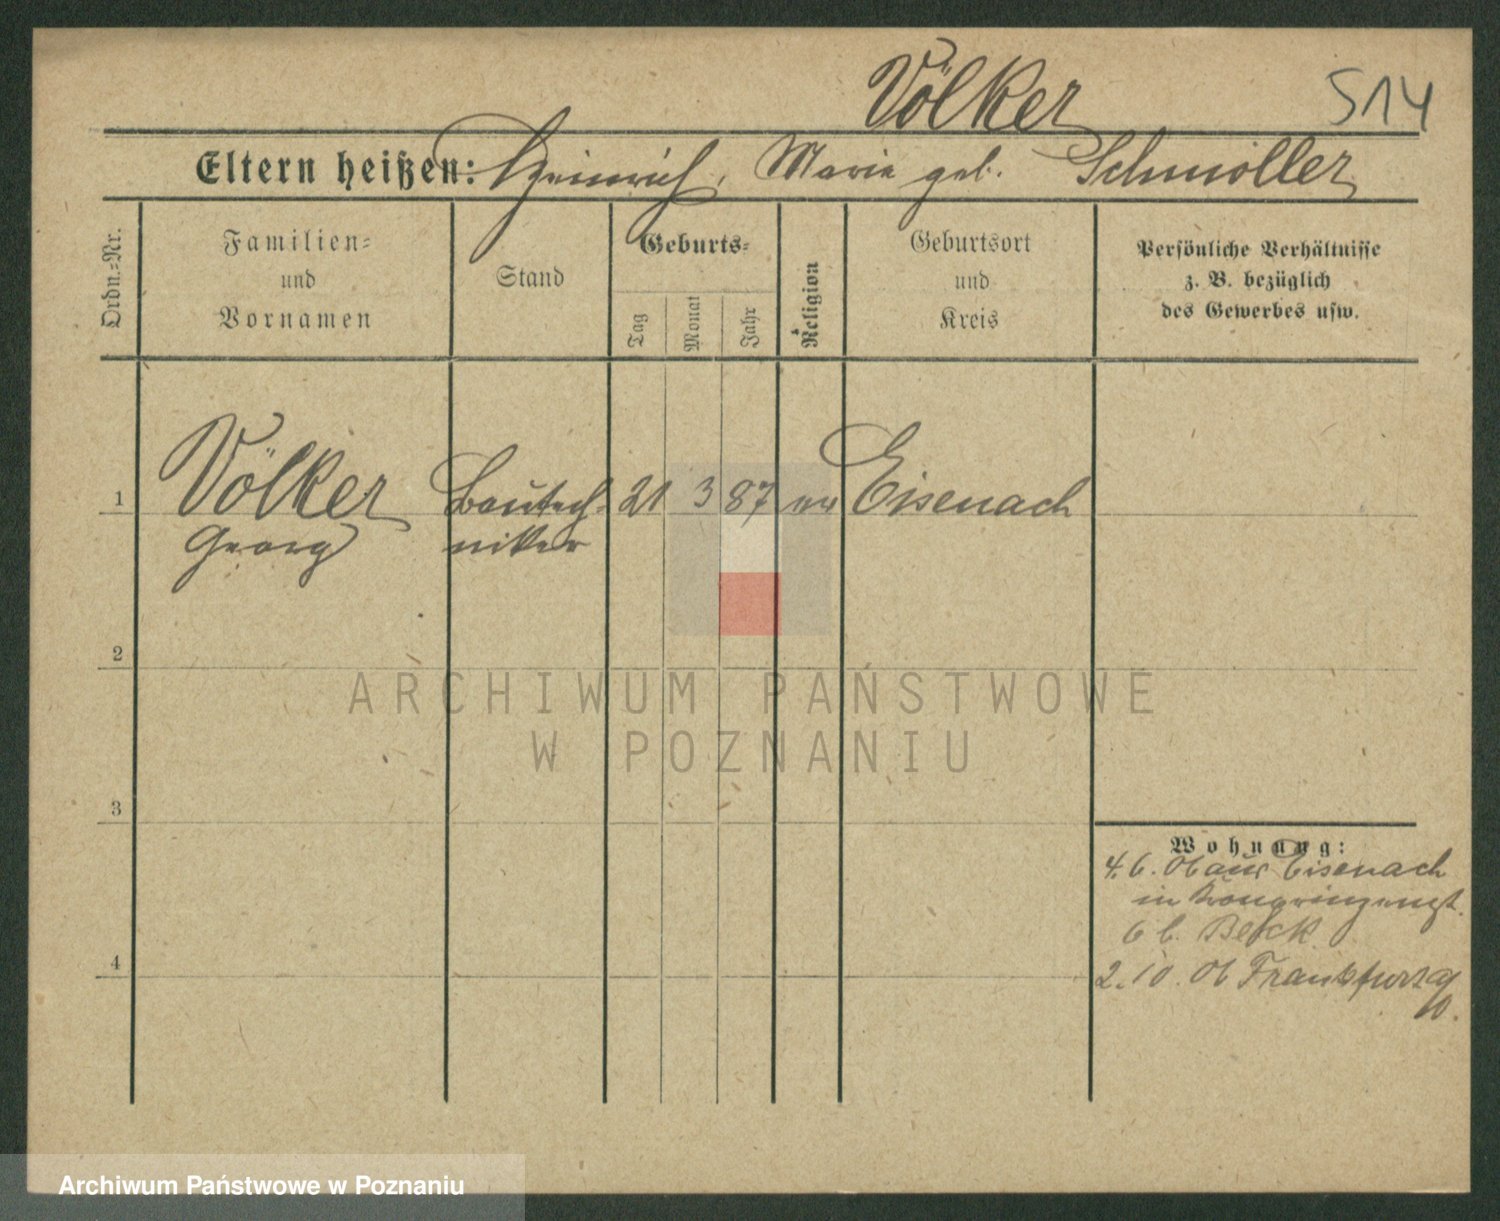 Völker 514
Eltern heißen: Heinrich, Marie geb. Schmöller
Ordn.=Nr.
Familien=
und
Vornamen
Stand
Geburts=
Tag
Monat
Jahr
Religion
Geburtsort
und
Kreis
Persönliche Verhältnisse
z. B. bezüglich
des Gewerbes usw.
1 Völker Bautech= 21 3 87 ev Eisenach
Georg niker
2
ARCHIWUM PAŃSTWOWE
W POZNANIU
3
Wohnung:
4. 6. 06 aus Eisenach
in
6 b. Beck
2. 10. 06
4
Archiwum Państwowe w Poznaniu